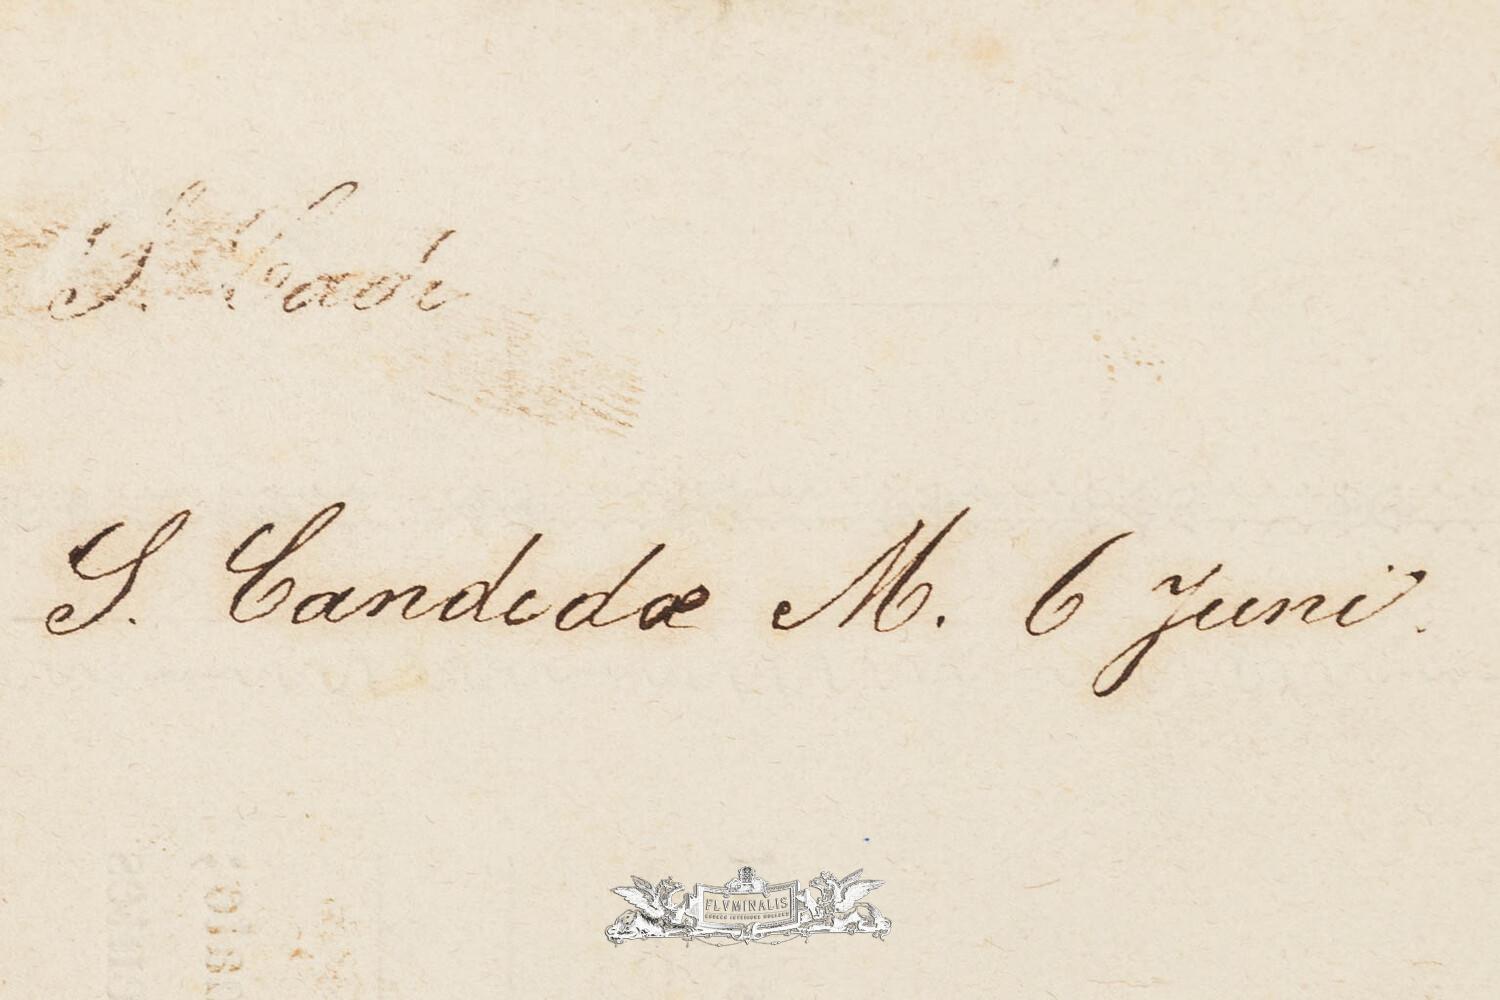 S. Cadi
S. Candidæ M. 6 Juni.
FLVMINALIS